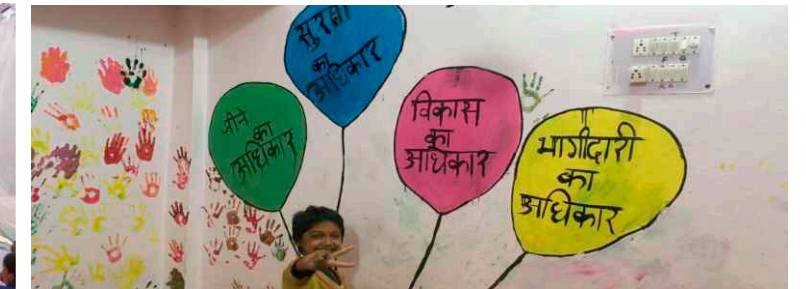 जीने
का
अधिकार
सुरक्षा
का
अधिकार
विकास
का
अधिकार
भागीदारी
का
अधिकार